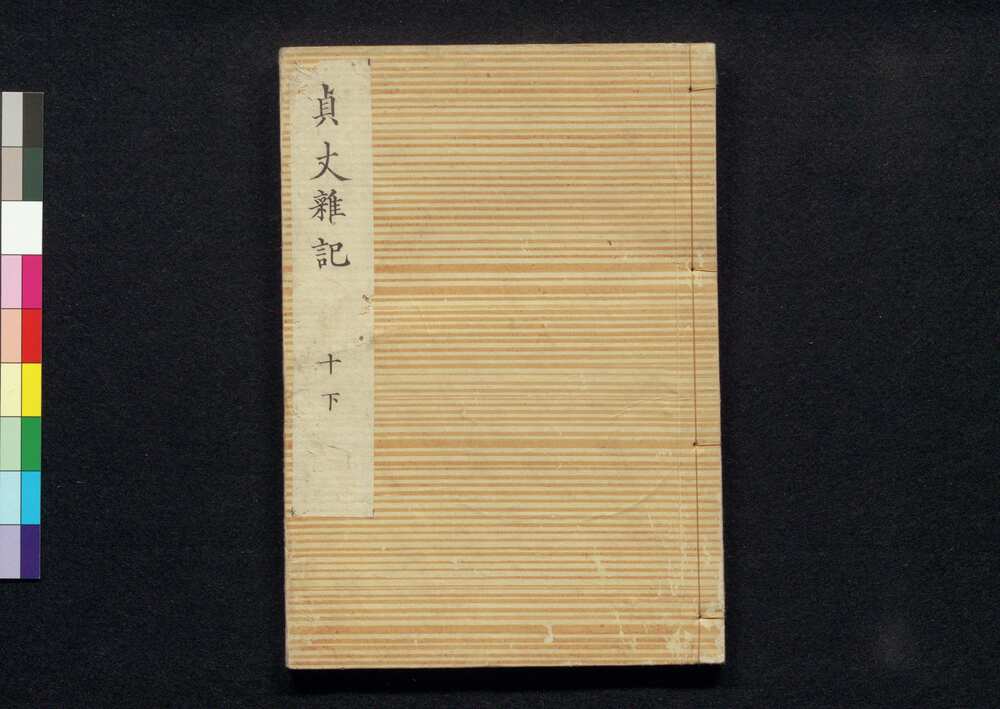 貞丈雜記
十下